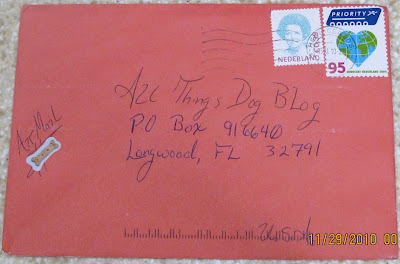 PRIORITY
NEDERLAND
95
All Things Dog Blog
P.O Box 916640
Longwood, FL 32791
Air Mail
11/29/2010